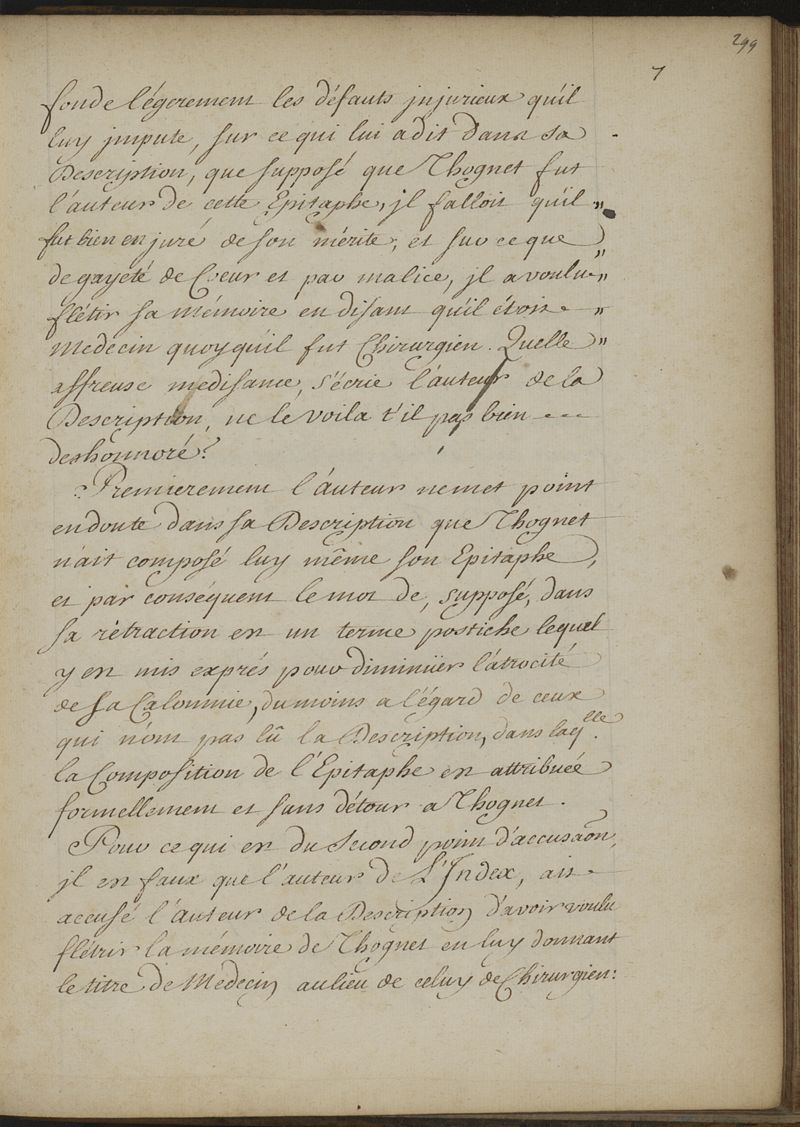 299
7
fonde légerement les défauts jnjurieux qu'il
luy jmpute, sur ce qui lui a dit dans sa
Description, que supposé que Thognet fut
l'auteur de cette Epitaphe, jl falloit qu'il "
fut bien en juré de son mérite, et sur ce que
de gayeté de Coeur et par malice, jl a voulu "
flétir sa mémoire en disant qu'il étoit "
Medecin quoy qu'il fut Chirurgien. Quelle "
affreuse medisance, s'écrie l'auteur de la
Description, ne le voila t'il pas bien ---
deshonnoré?
Premierement l'auteur ne met point
en doute dans sa Description que Thognet
n'ait composé luy même son Epitaphe,
et par conséquent le mot de, supposé, dans
sa rétraction est un terme postiche lequel
y est mis exprés pour diminüer l'atrocité
de sa Calomnie, du moins a l'égard de ceux
qui n'ont pas lû la Description, dans laq.lle
la Composition de l'Epitaphe est attribuée
formellement et sans détour a Thognet.
Pour ce qui est du Second point d'accusaõn,
jl est faux que l'auteur de L'Jndex, ait
accusé l'auteur de la Description d'avoir voulu
flétrir la mémoire de Thognet en luy donnant
le titre de Medecin au lieu de celuy de Chirurgien: